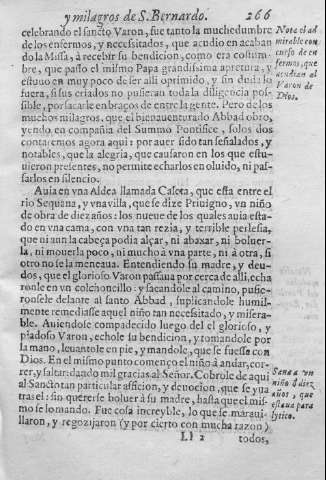 y milagros de S. Bernardo. 266
celebrando el sancto Varon, fue tanto la muchedumbre
de los enfermos, y necesitados, que acudio en acaban
do la Missa, à recebir su bendicion, como era costum-
bre, que passò el mismo Papa grandissima apretura, y
estuuo en muy poco de ser alli oprimido, y sin duda lo
fuera, si sus criados no pusieran toda la diligencia pos-
sible, por sacarle en braços de entre la gente. Pero de los
muchos milagros, que el bienauenturado Abbad obro,
yendo en compañia del Summo Pontifice, solos dos
contaremos agora aqui: por auer sido tan señalados, y
notables, que la alegria, que causaron en los que estu-
uieron presentes, no permite echarlos en oluido, ni pas-
sarlos en silencio.
Auia en vna Aldea llamada Caseta, que esta entre el
rio Sequana, y vna villa, que se dize Priuigno, vn niño
de obra de diez años: los nueue de los quales auia esta-
do en vna cama, con vna tan rezia, y terrible perlesia,
que ni aun la cabeça podia alçar, ni abaxar, ni boluer-
la, ni mouerla poco, ni mucho à vna parte, ni à otra, si
otro no se la meneaua. Entendiendo su madre, y deu-
dos, que el glorioso Varon passaua por cerca de alli, echa
ronle en vn colchoncillo: y sacandole al camino, pusie-
ronsele delante al santo Abbad, suplicandole humil-
mente remediasse aquel niño tan necesitado, y misera-
ble. Auiendose compadecido luego del el glorioso, y
piadoso Varon, echole su bendicion, y tomandole por
la mano, leuantole en pie, y mandole, que se fuesse con
Dios. En el mismo punto començo el niño à andar, cor-
rer, y saltar: dando mil gracias al Señor. Cobrole de aqui
al Sancto tan particular afficion, y deuocion, que se yua
tras el: sin quererse boluer à su madre, hasta que el mis-
mo se lo mando. Fue cosa increyble, lo que se maraui-
llaron, y regozijaron (y por cierto con mucha razon)
Ll 2 todos,
Nota el ad
mirable con
curso de en
fermos, que
acudian al
Varon de
Dios.
Sana a vn
niño d diez
años, que
estaua para
lytico.